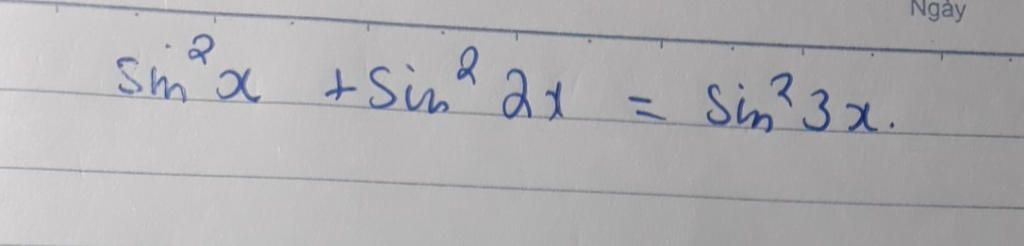 Ngày
sin²x + sin² 2x = sin² 3x.